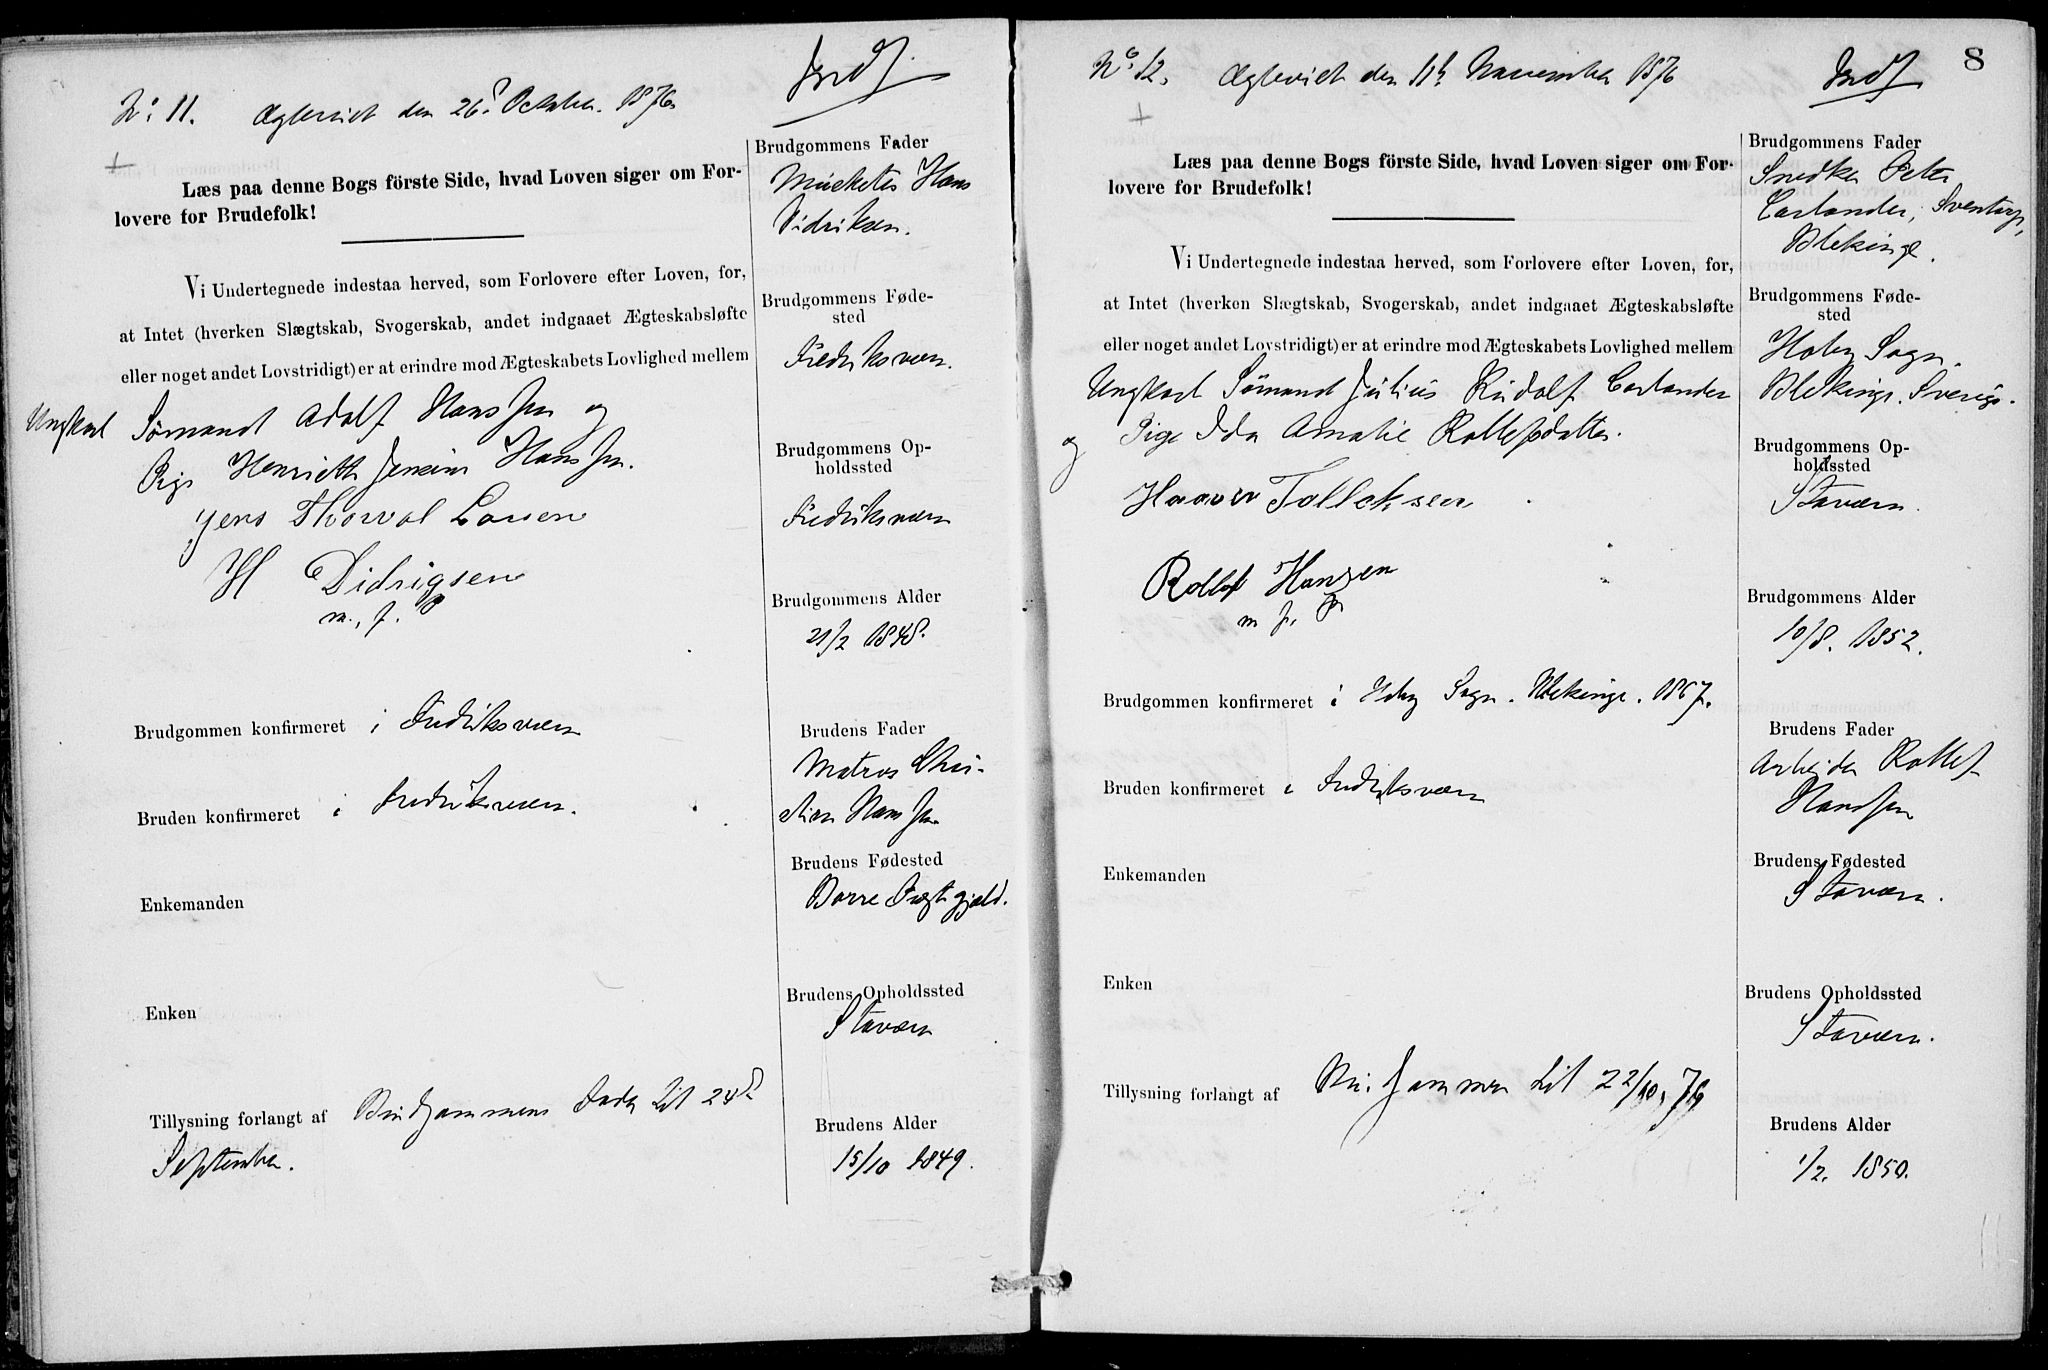 No. 11. Ægteviet den 26d October 1876
Indf.
+
Læs paa denne Bogs förste Side, hvad Loven siger om For-
lovere for Brudefolk!
Vi Undertegnede indestaa herved, som Forlovere efter Loven, for,
at Intet (hverken Slægtskab, Svogerskab, andet indgaaet Ægteskabsløfte
eller noget andet Lovstridigt) er at erindre mod Ægteskabets Lovlighed mellem
Ungkarl Sömand Adolf Hanssen og
Pige Henriette Hanssen.
Jens Thorval Larsen
H Didrigsen
m. f. P
Brudgommen konfirmeret i Fredriksværn
Bruden konfirmeret i Fredriksværn.
Enkemanden
Enken
Tillysning forlangt af Brudgommens Fader Lit 24d
September.
Brudgommens Fader
Hans
Didriksen.
Brudgommens Føde-
sted
Fredriksværn.
Brudgommens Op-
holdssted
Fredriksværn
Brudgommens Alder
21/2 1848.
Brudens Fader
Matros Chri-
stian Hanssen
Brudens Fødested
Borre Præstegjæld.
Brudens Opholdssted
Staværn
Brudens Alder
15/10 1849.
No. 12. Ægteviet den 11te November 1876
Indf
8
+
Læs paa denne Bogs förste Side, hvad Loven siger om For-
lovere for Brudefolk!
Vi Undertegnede indestaa herved, som Forlovere efter Loven, for,
at Intet (hverken Slægtskab, Svogerskab, andet indgaaet Ægteskabsløfte
eller noget andet Lovstridigt) er at erindre mod Ægteskabets Lovlighed mellem
Ungkarl Sömand Julius Rudolf Carlander
og Pige Ida Amalie Rollefsdatter.
Haaver Tolleksen
Rollef Hansen
m f. P
Brudgommen konfirmeret i Hoby Sogn. Blekinge. 1867.
Bruden konfirmeret i Fredriksværn
Enkemanden
Enken
Tillysning forlangt af Brudgommen Lit 22/10. 76
Brudgommens Fader
Snedker Peter
Carlander, Sventorp,
Blekinge.
Brudgommens Føde-
sted
Hoby Sogn.
Blekinge. Sverige.
Brudgommens Op-
holdssted
Staværn.
Brudgommens Alder
10/8. 1852.
Brudens Fader
Arbeider Rollef
Handsen
Brudens Fødested
Staværn.
Brudens Opholdssted
Staværn.
Brudens Alder
1/2. 1850.